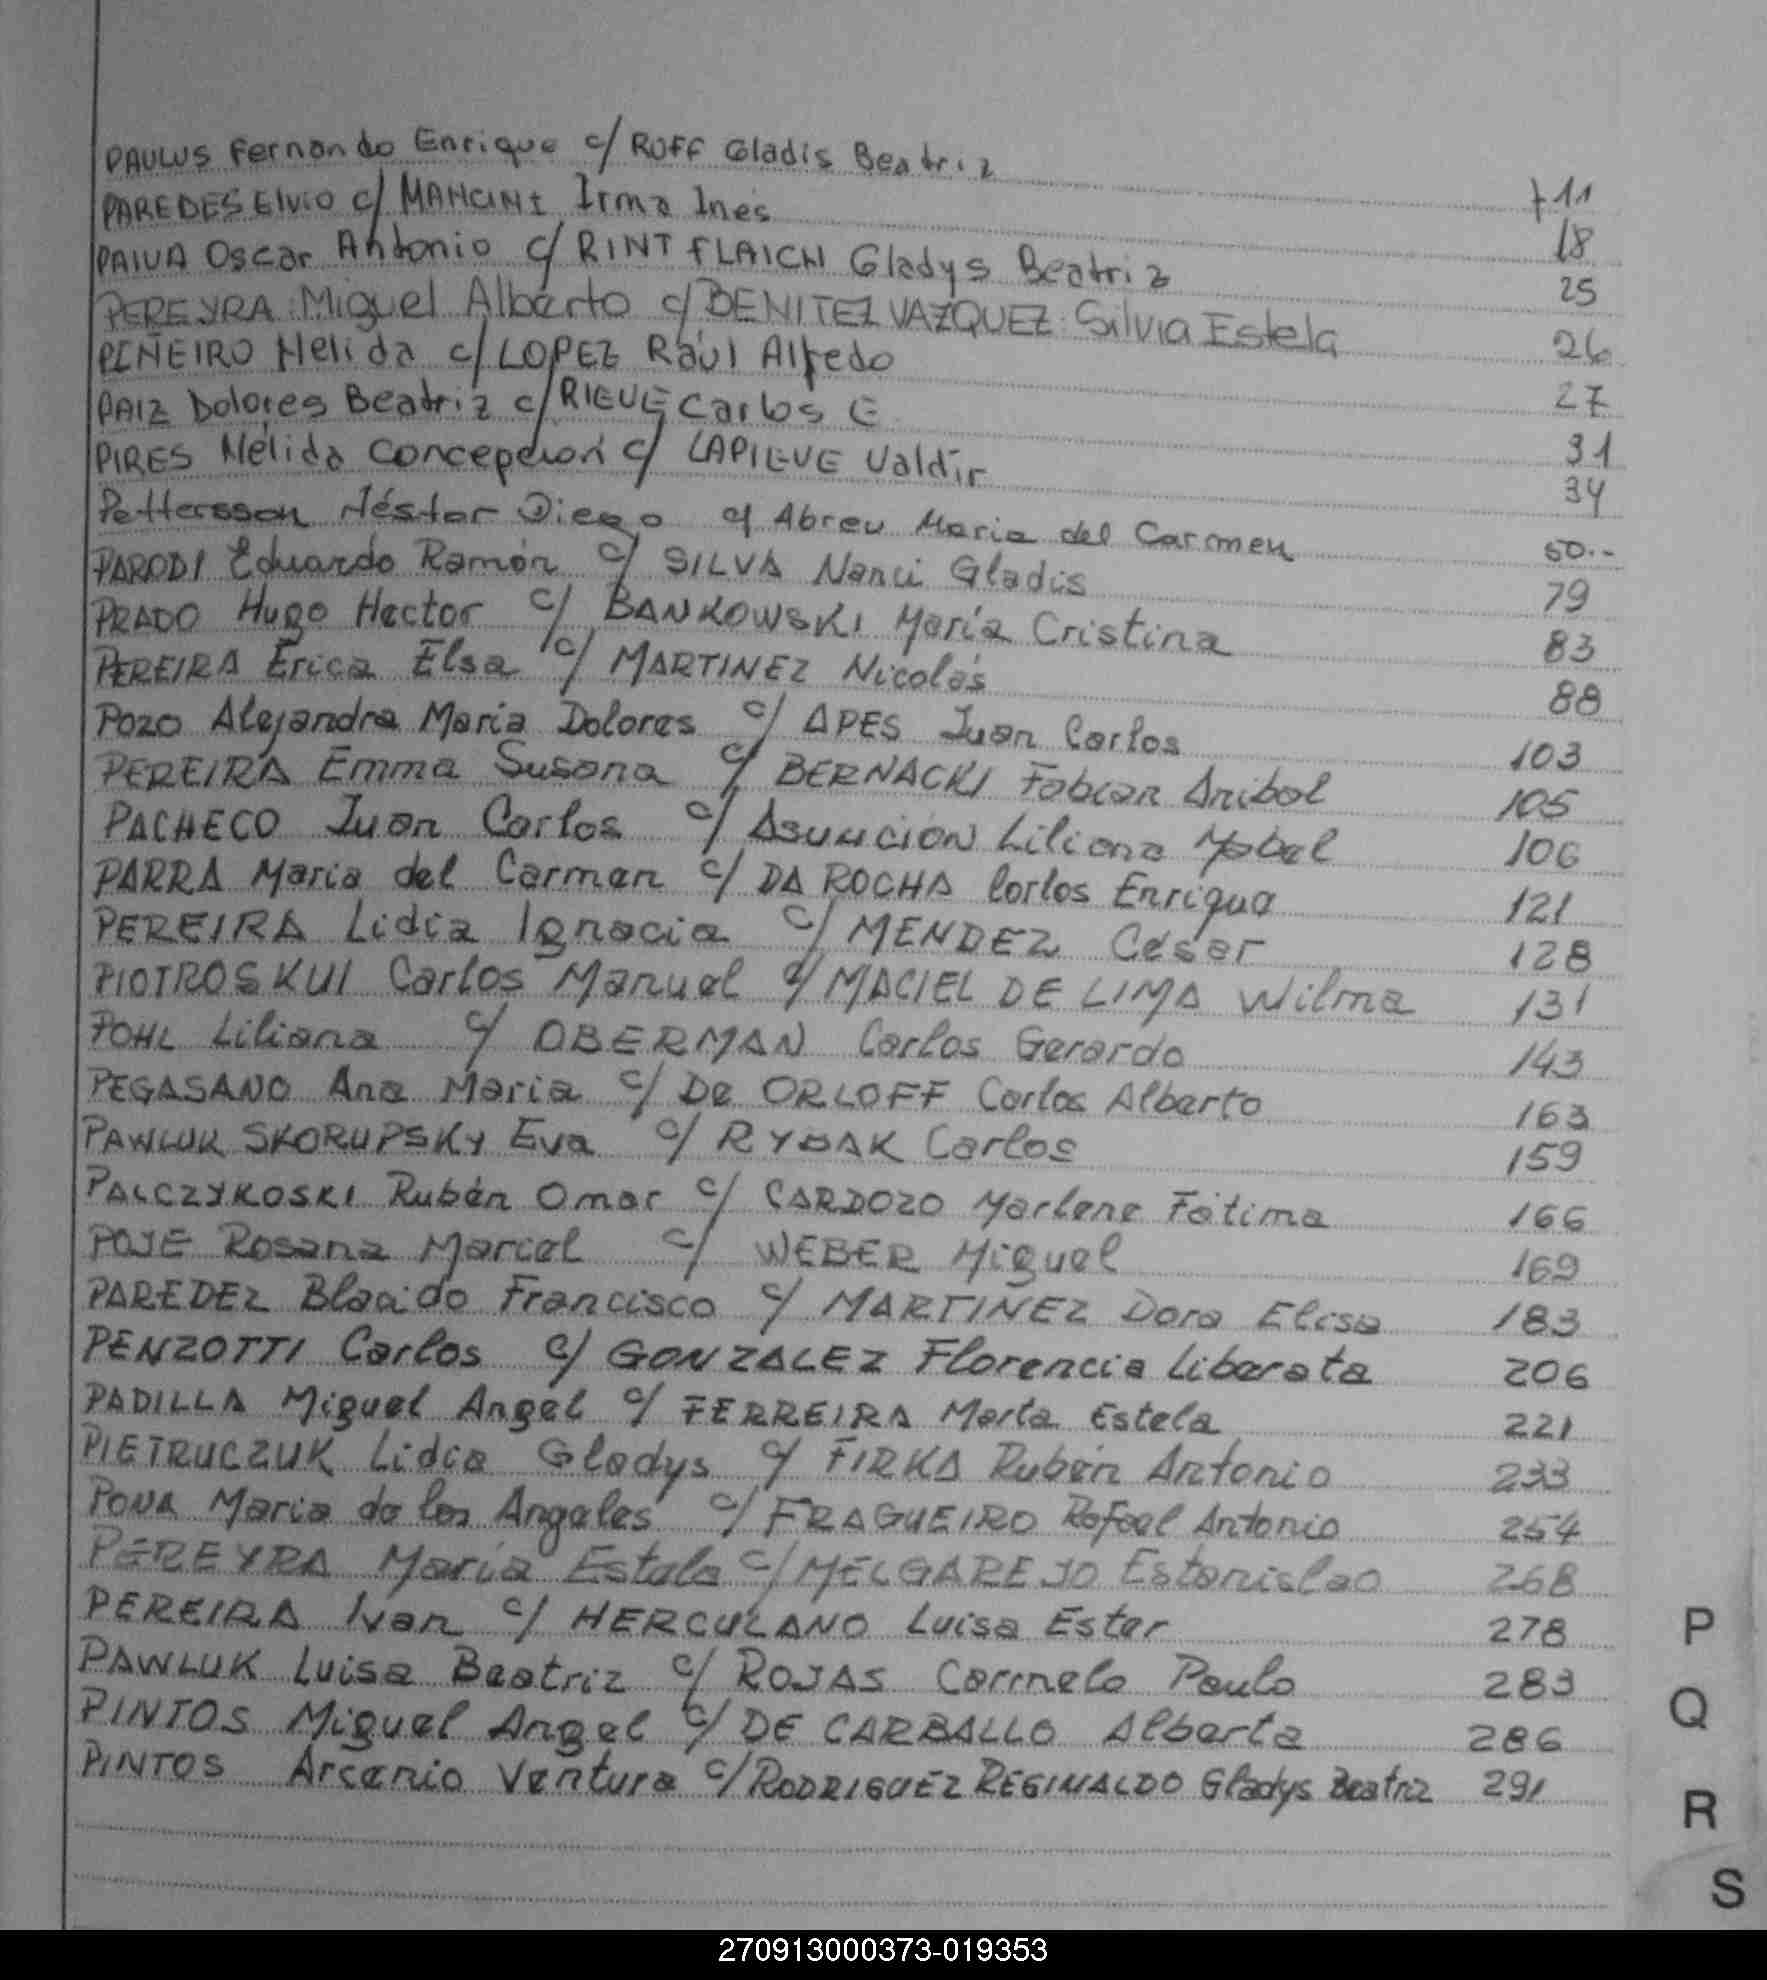 PAULUS Fernando Enrique c/ ROFF Gladis Beatriz 11
PAREDES Elvio c/ MANCINI Irma Inés 18
PAIVA Oscar Antonio c/ RINTFLAICH Gladys Beatriz 25
PEREYRA Miguel Alberto c/ BENITEZ VAZQUEZ Silvia Estela 26
PIÑEIRO Nelida c/ LOPEZ Raúl Alfredo 27
PAIZ Dolores Beatriz c/ RIEVE Carlos E 31
PIRES Nélida Concepción c/ LAPIEVE Valdir 34
Pettersson Néstor Diego c/ Abreu Maria del Carmen 50.-
PARODI Eduardo Ramón c/ SILVA Nanci Gladis 79
PRADO Hugo Hector c/ BANKOWSKI María Cristina 83
PEREIRA Erica Elsa c/ MARTINEZ Nicolás 88
POZO Alejandra Maria Dolores c/ APES Juan Carlos 103
PEREIRA Emma Susana c/ BERNACKI Fabian Anibal 105
PACHECO Juan Carlos c/ ASUNCION Liliana Mabel 106
PARRA Maria del Carmen c/ DA ROCHA Carlos Enrique 121
PEREIRA Lidia Ignacia c/ MENDEZ César 128
PIOTROSKUI Carlos Manuel c/ MACIEL DE LIMA Wilma 131
POHL Liliana c/ OBERMAN Carlos Gerardo 143
PEGASANO Ana Maria c/ De ORLOFF Carlos Alberto 163
PAWLUK SKORUPSKY Eva c/ RYBAK Carlos 159
PALCZYKOSKI Rubén Omar c/ CARDOZO Marlene Fátima 166
POJE Rosana Mariel c/ WEBER Miguel 169
PAREDEZ Blacido Francisco c/ MARTIÑEZ Dora Elisa 183
PENZOTTI Carlos c/ GONZALEZ Florencia Liberata 206
PADILLA Miguel Angel c/ FERREIRA Marta Estela 221
PIETRUCZUK Lidia Gladys c/ FIRKA Rubén Antonio 233
Maria de los Angeles c/ FRAGUEIRO Rafael Antonio 254
PEREYRA María Estela c/ MELGAREJO Estanislao 268
PEREIRA Ivan c/ HERCULANO Luisa Ester 278
PAWLUK Luisa Beatriz c/ ROJAS Carmelo Paulo 283
PINTOS Miguel Angel c/ DE CARBALLO Alberta 286
PINTOS Arsenio Ventura c/ RODRIGUEZ REGINALDO Gladys Beatriz 291
P
Q
R
S
270913000373-019353